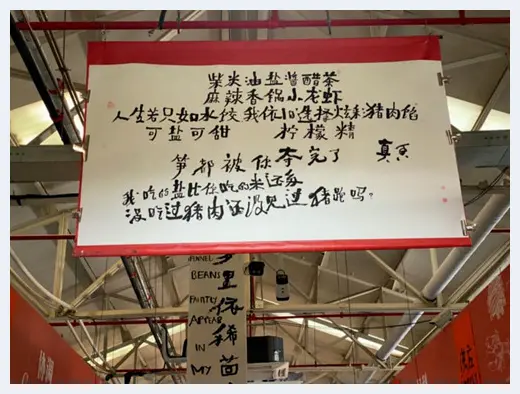 柴米油盐酱醋茶
麻辣香锅小龙虾
人生若只如水饺 我依旧选择炫彩猪肉馅
可盐可甜 柠檬精
笋都被你夺完了 真
我吃的盐比你吃的米还多
没吃过猪肉还没见过猪跑吗?
里依稀茴
BEANS
FAINTLY
APPEAR
IN
MY